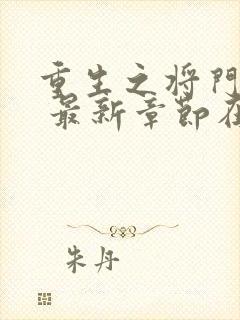 重生之将門
最新章節在
朱丹